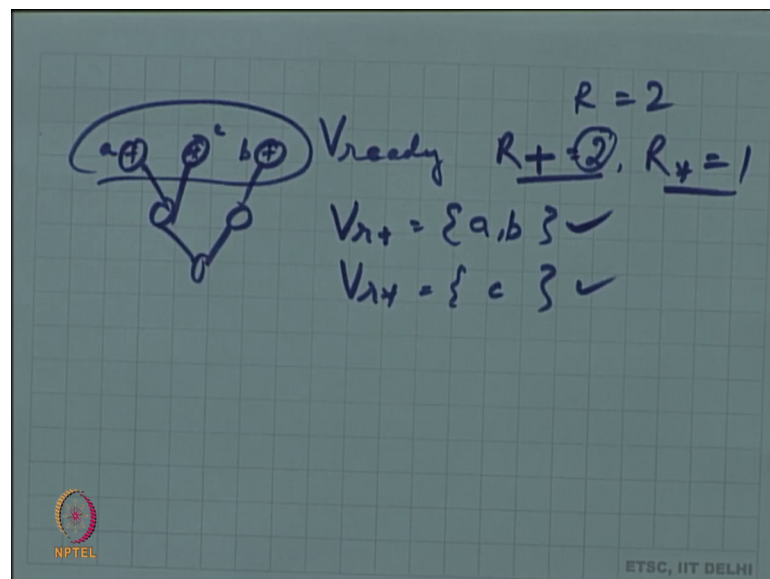 R = 2
a + * c b + V ready R+ = 2, R* = 1
Vr+ = { a, b } ✓
Vr* = { c } ✓
NPTEL
ETSC, IIT DELHI